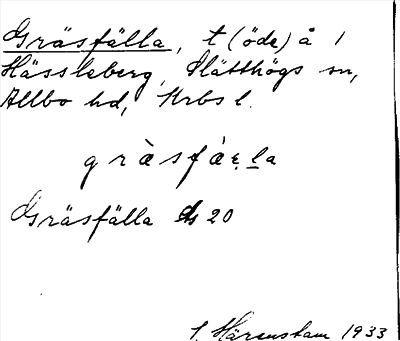 Gräsfälla, t (öde) å 1
Hässleberg, Slätthögs sn,
Allbo hd, Krbs l.
gräsfä̀ɛ̣l̠a
Gräsfälla Gs 20
S. Härenstam 1933